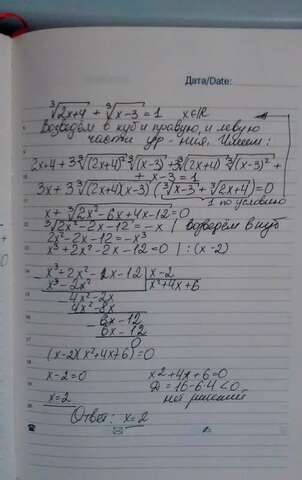 Дата/Date:
∛2x+4 + ∛x-3 = 1   x∈R
Возведём в куб и правую, и левую
части ур-ния. Имеем:
2x+4+3∛(2x+4)²∛(x-3)+3∛(2x+4)∛(x-3)²+
+ x-3=1
3x+3∛(2x+4)(x-3)(∛x-3+∛2x+4)=0
1 по условию
x+∛2x²-6x+4x-12=0
∛2x²-2x-12=-x | возведём в куб
2x²-2x-12=-x³
x³+2x²-2x-12=0 | :(x-2)
x³+2x²-2x-12 | x-2
x³-2x² | x²+4x+6
4x²-2x
4x²-8x
6x-12
6x-12
0
(x-2)(x²+4x+6)=0
x-2=0   x²+4x+6=0
D=16-6·4<0
x=2   нет решений
Ответ: x=2